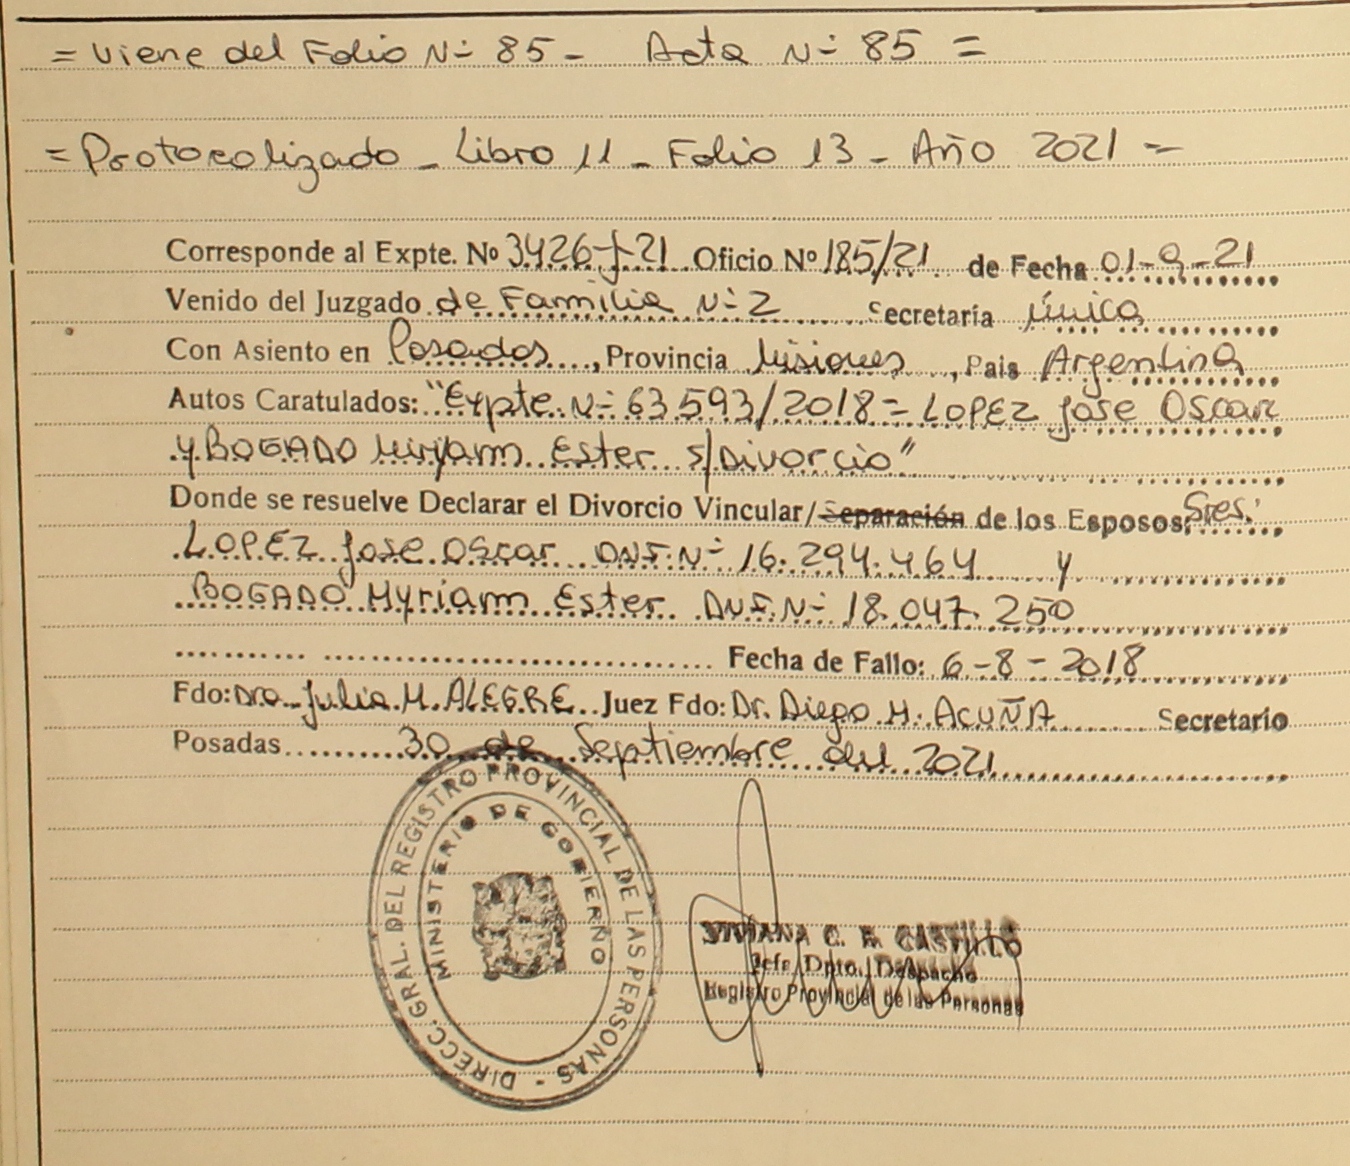 = Viene del Folio N° 85 - Acta N° 85 =
= Protocolizado - Libro 11 - Folio 13 - Año 2021 =
Corresponde al Expte. Nº 3426-J-21 Oficio Nº 185/21 de Fecha 01-9-21
Venido del Juzgado de Familia N° 2 Secretaría Única
Con Asiento en Posadas, Provincia Misiones, Pais Argentina
Autos Caratulados: "Expte. N° 63.593/2018 = LOPEZ Jose Oscar
y BOGADO Miryam Ester s/Divorcio"
Donde se resuelve Declarar el Divorcio Vincular/Separación de los Esposos: Sres.
LOPEZ Jose Oscar DNI. N° 16.294.464 y
BOGADO Myriam Ester DNI. N° 18.047.250
Fecha de Fallo: 6-8-2018
Fdo: Dra. Julia M. ALEGRE Juez Fdo: Dr. Diego M. ACUÑA Secretario
Posadas 30 de Septiembre del 2021
DIRECC. GRAL. DEL REGISTRO PROVINCIAL DE LAS PERSONAS -
MINISTERIO DE GOBIERNO
VIVIANA C. CASTILLO
Jefe Dpto. Despacho
Registro Provincial de las Personas